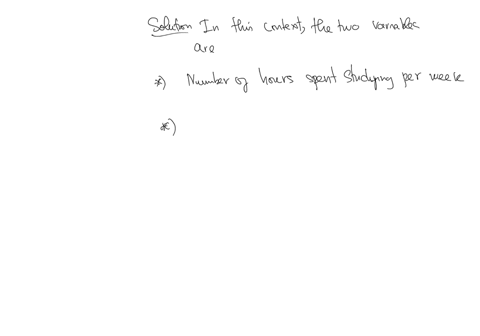 Solution In this context, the two variables
are
*) Number of hours spent studying per week
*)